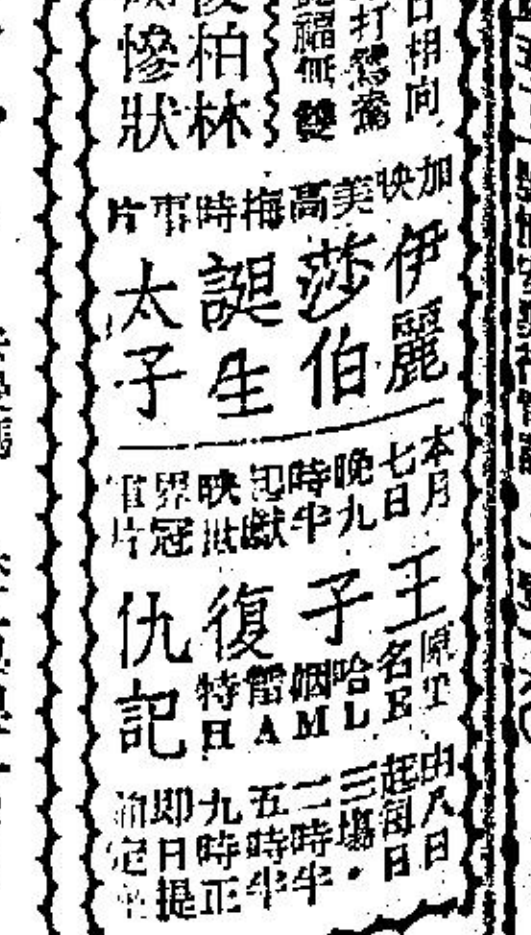 日相向
打鴛鴦
福無雙
柏林
慘狀
加映美高梅時事片
伊麗
莎伯
誕生
太子
本月七日晚九時半起獻映世界冠軍片
王子復仇記
原名哈姻雷特
HAMLET
由八日起每日三場·二時半五時半九時正
即日提前定